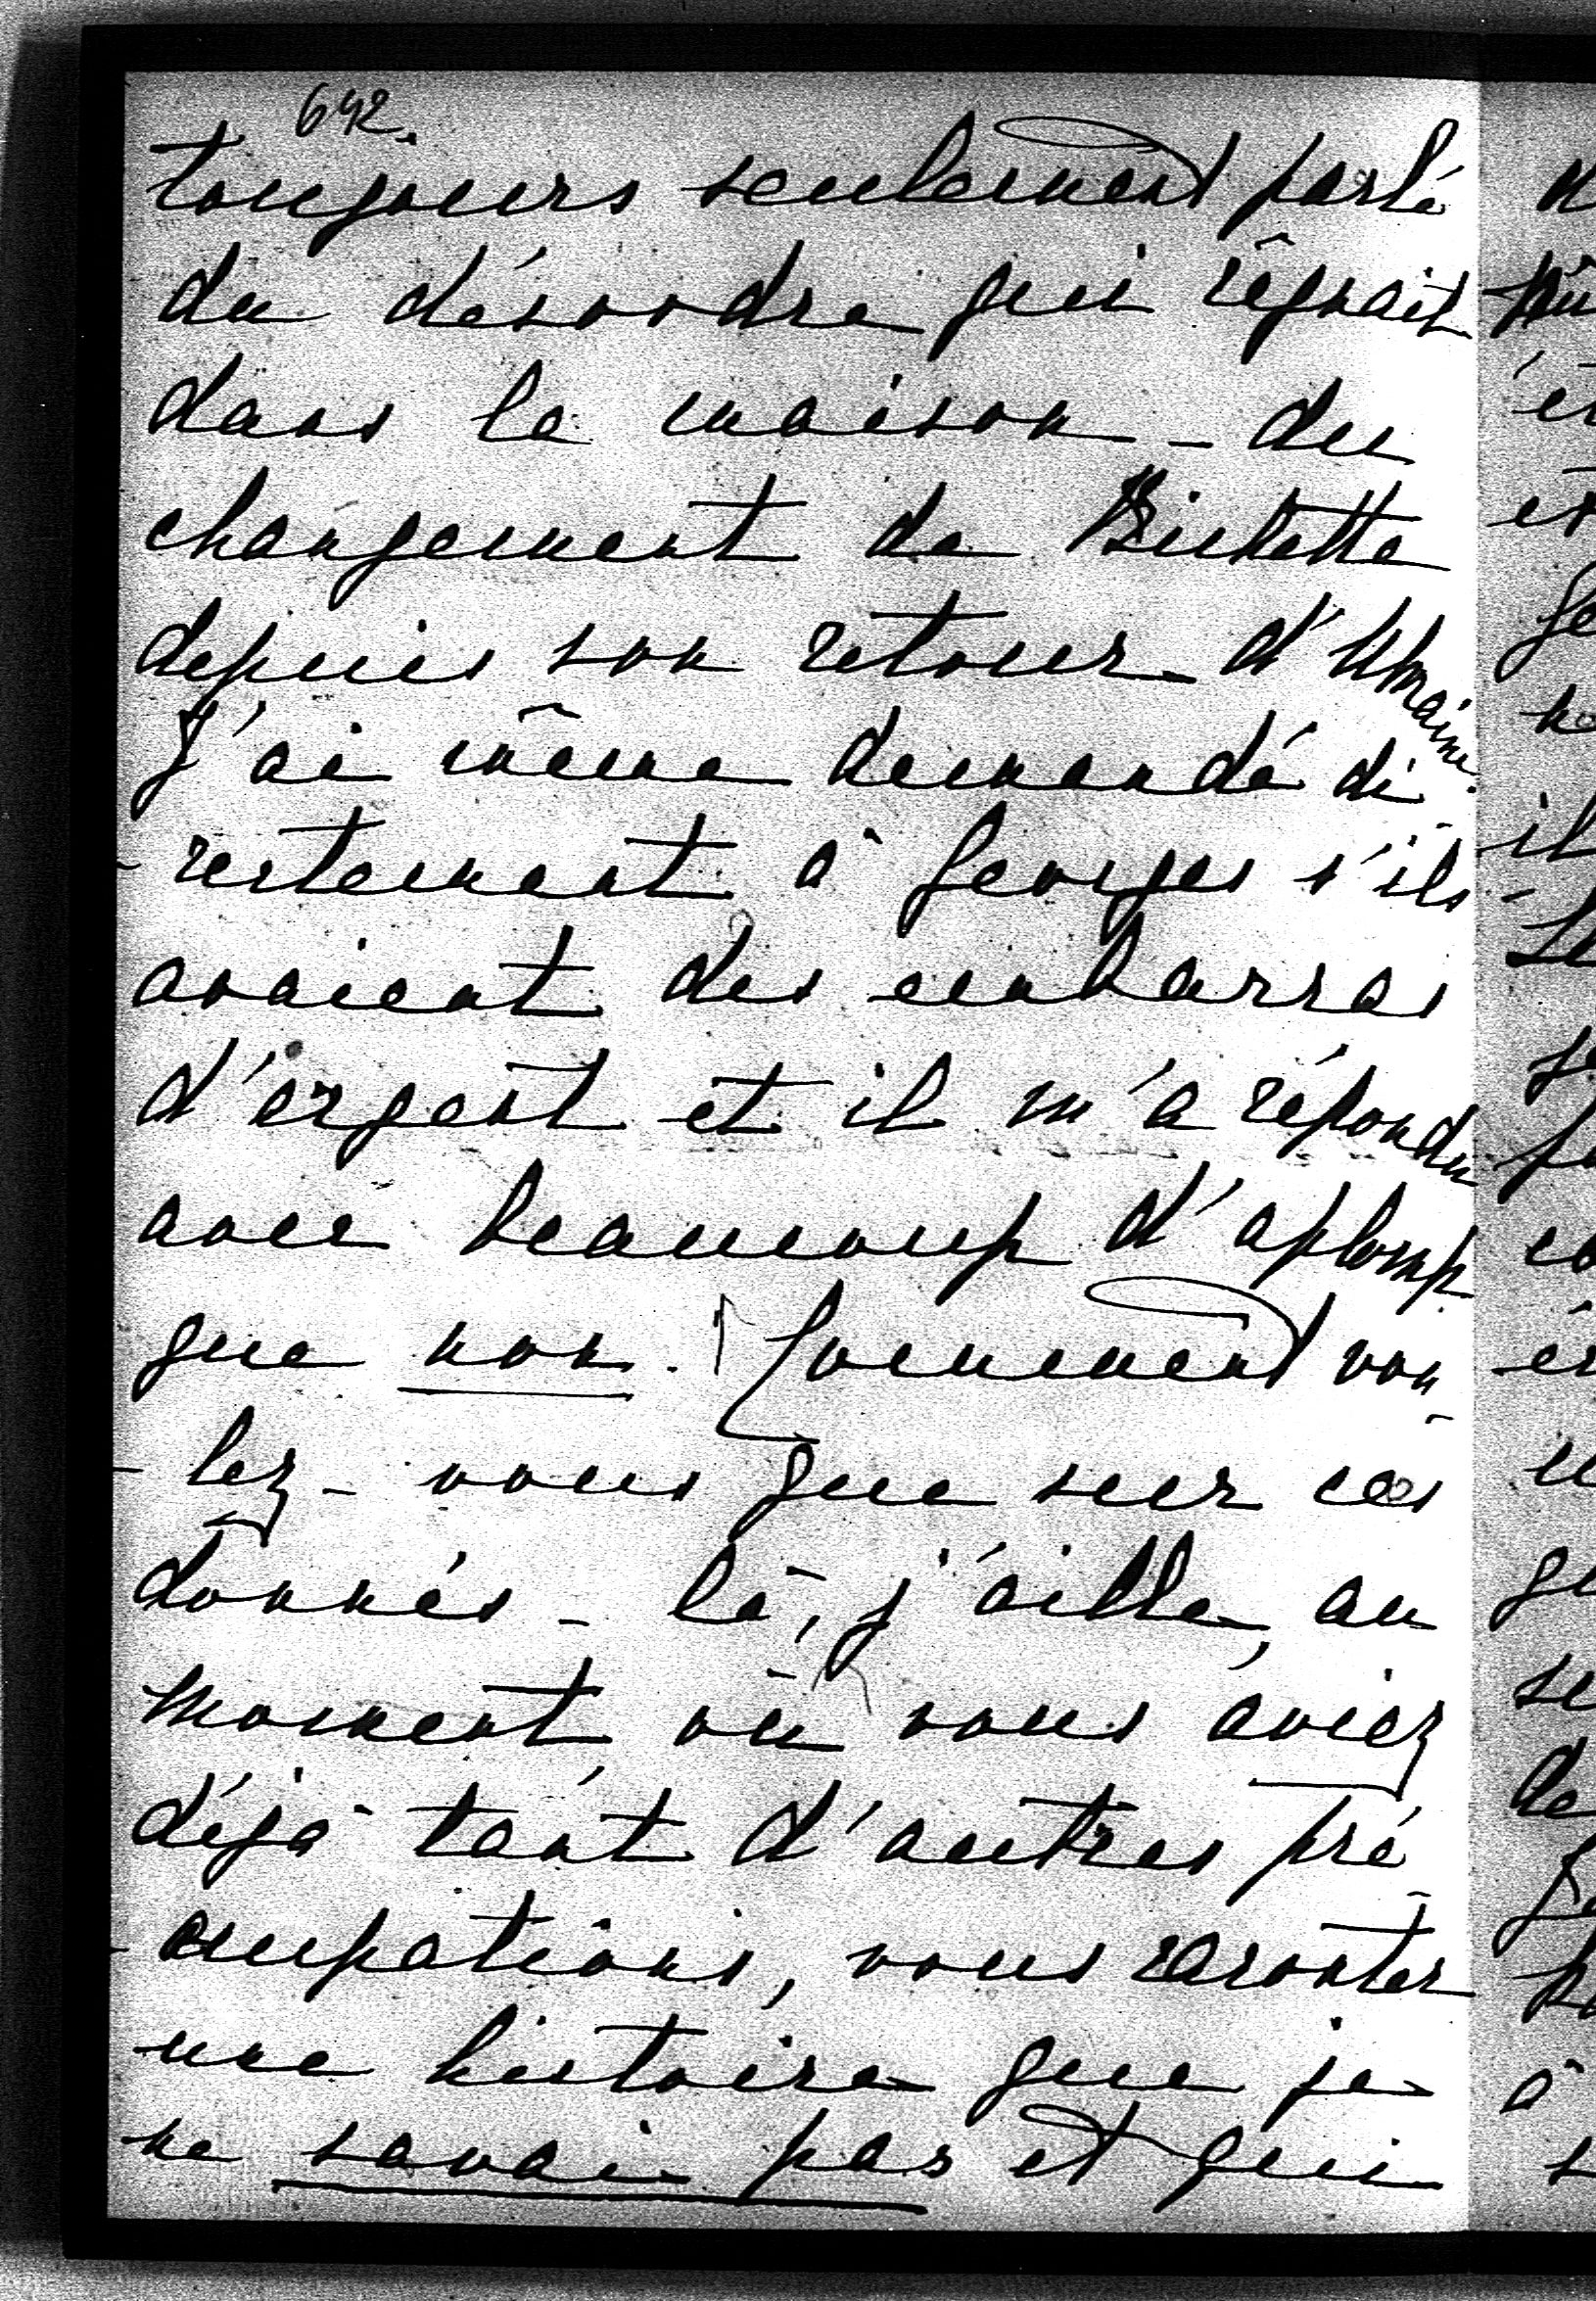 642.
toujours seulement parlé
du désordre qui régnait
dans la maison - du
changement de Bichette
depuis son retour d'Ukraine.
J'ai même demandé di-
-rectement à Georges s'ils
avaient des embarras
d'argent et il m'a répondu
avec beaucoup d'aplomp
que non. Comment vou-
-lez-vous que sur ces
donnés-là, j'aille, au
moment où vous aviez
déjà tant d'autres pré-
-ocupations, vous raconter
une histoire que je
ne savai pas et qui